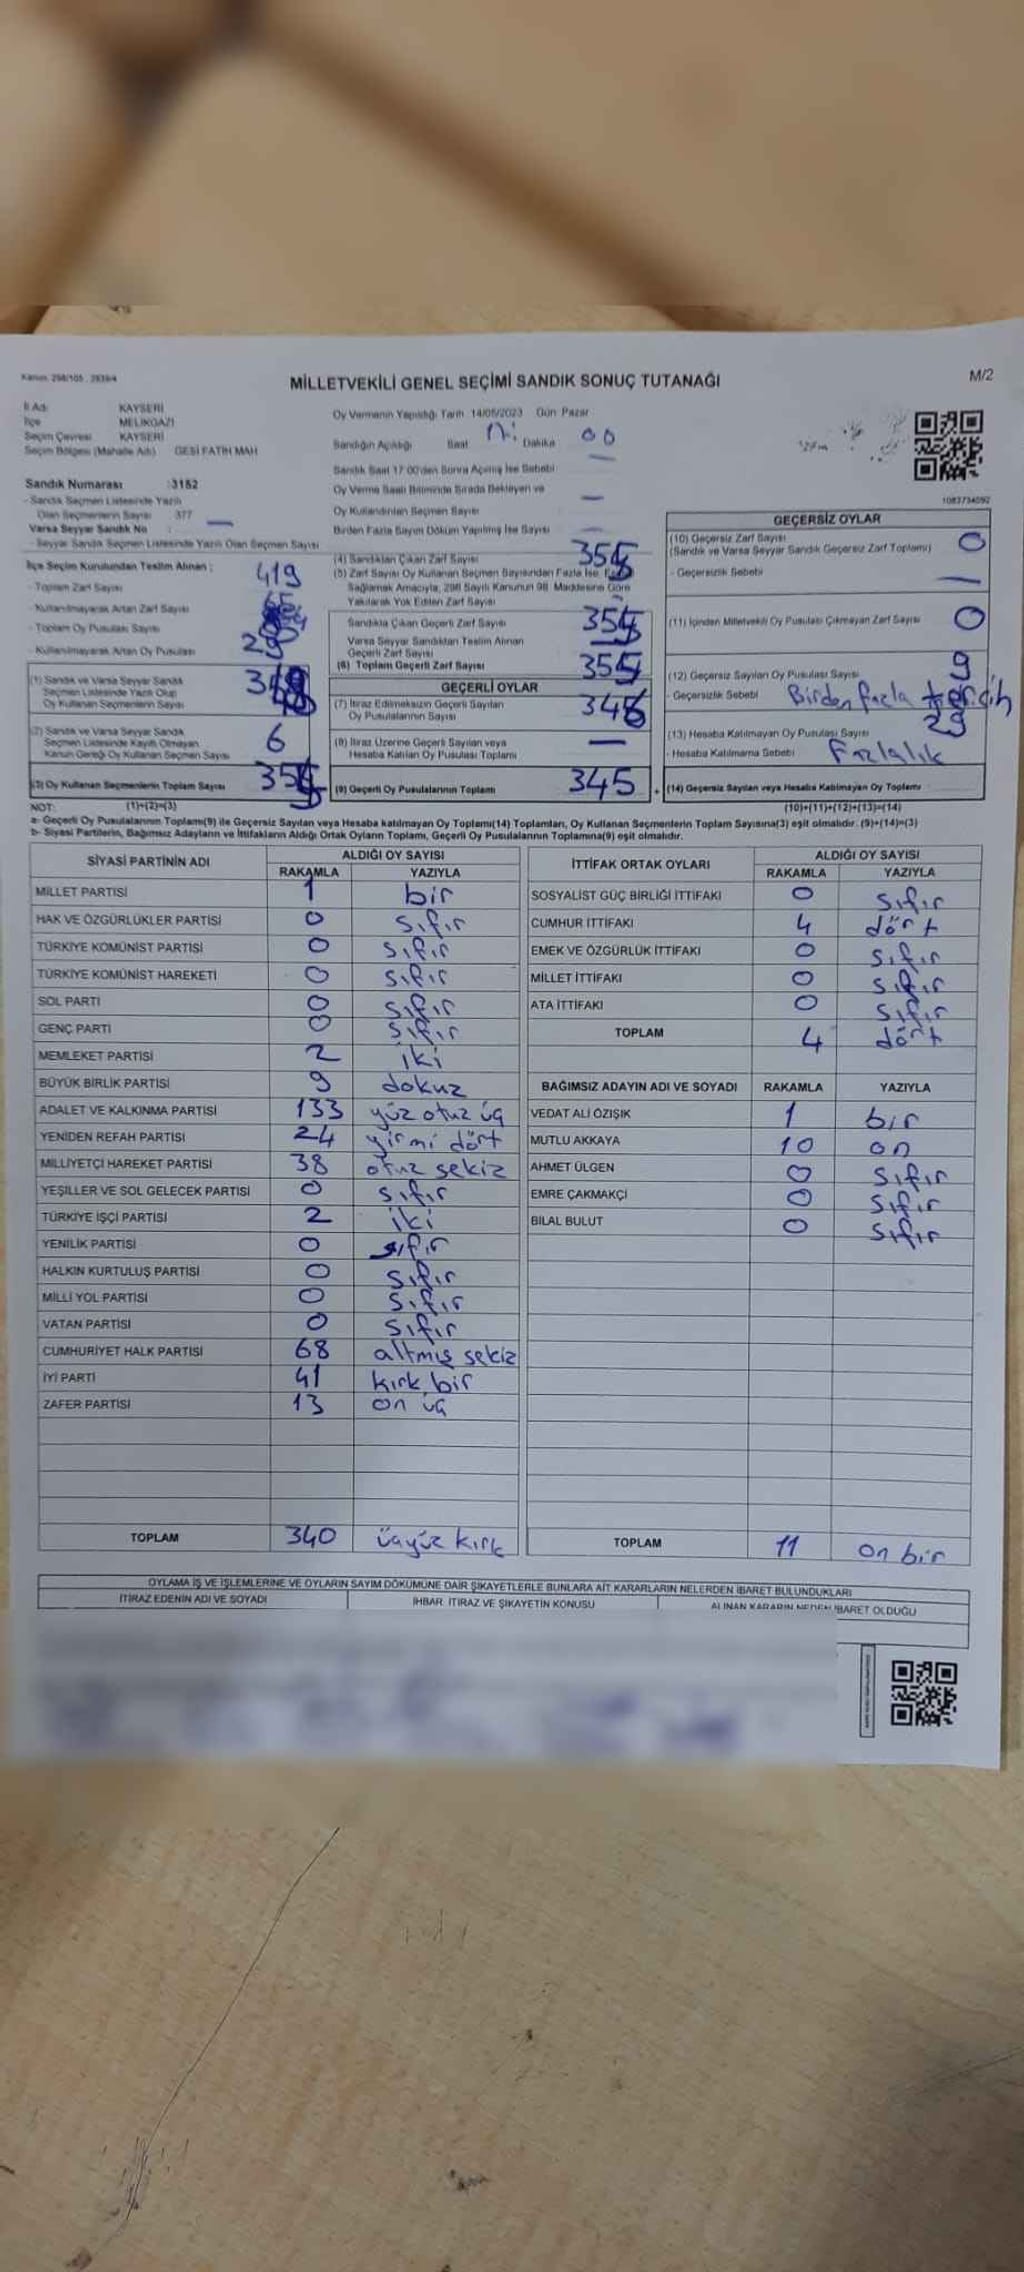 Kanun: 298/105 , 2839/4
MİLLETVEKİLİ GENEL SEÇİMİ SANDIK SONUÇ TUTANAĞI
M/2
İl Adı KAYSERİ
İlçe MELİKGAZİ
Seçim Çevresi KAYSERİ
Seçim Bölgesi (Mahalle Adı) GESİ FATİH MAH
Sandık Numarası :3152
- Sandık Seçmen Listesinde Yazılı
Olan Seçmenlerin Sayısı 377
Varsa Seyyar Sandık No : —
- Seyyar Sandık Seçmen Listesinde Yazılı Olan Seçmen Sayısı
İlçe Seçim Kurulundan Teslim Alınan :
- Toplam Zarf Sayısı 419
- Kullanılmayarak Artan Zarf Sayısı
- Toplam Oy Pusulası Sayısı
- Kullanılmayarak Artan Oy Pusulası
(1) Sandık ve Varsa Seyyar Sandık
Seçmen Listesinde Yazılı Olup
Oy Kullanan Seçmenlerin Sayısı
(2) Sandık ve Varsa Seyyar Sandık
Seçmen Listesinde Kayıtlı Olmayan
Kanun Gereği Oy Kullanan Seçmen Sayısı 6
(3) Oy Kullanan Seçmenlerin Toplam Sayısı
(1)+(2)=(3)
Oy Vermenin Yapıldığı Tarih 14/05/2023 Gün Pazar
Sandığın Açıldığı Saat Dakika 00
Sandık Saat 17:00'den Sonra Açılmış İse Sebebi —
Oy Verme Saati Bitiminde Sırada Bekleyen ve
Oy Kullandırılan Seçmen Sayısı —
Birden Fazla Sayım Döküm Yapılmış İse Sayısı —
(4) Sandıktan Çıkan Zarf Sayısı
(5) Zarf Sayısı Oy Kullanan Seçmen Sayısından Fazla İse
Sağlamak Amacıyla, 298 Sayılı Kanunun 98. Maddesine Göre
Yakılarak Yok Edilen Zarf Sayısı
Sandıkta Çıkan Geçerli Zarf Sayısı
Varsa Seyyar Sandıktan Teslim Alınan
Geçerli Zarf Sayısı —
(6) Toplam Geçerli Zarf Sayısı
GEÇERLİ OYLAR
(7) İtiraz Edilmeksizin Geçerli Sayılan
Oy Pusulalarının Sayısı
(8) İtiraz Üzerine Geçerli Sayılan veya
Hesaba Katılan Oy Pusulası Toplamı —
(9) Geçerli Oy Pusulalarının Toplamı 345
1083734592
GEÇERSİZ OYLAR
(10) Geçersiz Zarf Sayısı
(Sandık ve Varsa Seyyar Sandık Geçersiz Zarf Toplamı) 0
- Geçersizlik Sebebi —
(11) İçinden Milletvekili Oy Pusulası Çıkmayan Zarf Sayısı 0
(12) Geçersiz Sayılan Oy Pusulası Sayısı 9
- Geçersizlik Sebebi Birden fazla tercih
(13) Hesaba Katılmayan Oy Pusulası Sayısı 29
- Hesaba Katılmama Sebebi Fazlalık
+ (14) Geçersiz Sayılan veya Hesaba Katılmayan Oy Toplamı
(10)+(11)+(12)+(13)=(14)
NOT:
a- Geçerli Oy Pusulalarının Toplamı(9) ile Geçersiz Sayılan veya Hesaba katılmayan Oy Toplamı(14) Toplamları, Oy Kullanan Seçmenlerin Toplam Sayısına(3) eşit olmalıdır. (9)+(14)=(3)
b- Siyasi Partilerin, Bağımsız Adayların ve İttifakların Aldığı Ortak Oyların Toplamı, Geçerli Oy Pusulalarının Toplamına(9) eşit olmalıdır.
SİYASİ PARTİNİN ADI ALDIĞI OY SAYISI
RAKAMLA YAZIYLA
MİLLET PARTİSİ 1 bir
HAK VE ÖZGÜRLÜKLER PARTİSİ 0 sıfır
TÜRKİYE KOMÜNİST PARTİSİ 0 sıfır
TÜRKİYE KOMÜNİST HAREKETİ 0 sıfır
SOL PARTİ 0 sıfır
GENÇ PARTİ 0 sıfır
MEMLEKET PARTİSİ 2 iki
BÜYÜK BİRLİK PARTİSİ 9 dokuz
ADALET VE KALKINMA PARTİSİ 133 yüz otuz üç
YENİDEN REFAH PARTİSİ 24 yirmi dört
MİLLİYETÇİ HAREKET PARTİSİ 38 otuz sekiz
YEŞİLLER VE SOL GELECEK PARTİSİ 0 sıfır
TÜRKİYE İŞÇİ PARTİSİ 2 iki
YENİLİK PARTİSİ 0 sıfır
HALKIN KURTULUŞ PARTİSİ 0 sıfır
MİLLİ YOL PARTİSİ 0 sıfır
VATAN PARTİSİ 0 sıfır
CUMHURİYET HALK PARTİSİ 68 altmış sekiz
İYİ PARTİ 41 kırk bir
ZAFER PARTİSİ 13 on üç
TOPLAM 340 üçyüz kırk
İTTİFAK ORTAK OYLARI ALDIĞI OY SAYISI
RAKAMLA YAZIYLA
SOSYALİST GÜÇ BİRLİĞİ İTTİFAKI 0 sıfır
CUMHUR İTTİFAKI 4 dört
EMEK VE ÖZGÜRLÜK İTTİFAKI 0 sıfır
MİLLET İTTİFAKI 0 sıfır
ATA İTTİFAKI 0 sıfır
TOPLAM 4 dört
BAĞIMSIZ ADAYIN ADI VE SOYADI RAKAMLA YAZIYLA
VEDAT ALİ ÖZIŞIK 1 bir
MUTLU AKKAYA 10 on
AHMET ÜLGEN 0 sıfır
EMRE ÇAKMAKÇİ 0 sıfır
BİLAL BULUT 0 sıfır
TOPLAM 11 on bir
OYLAMA İŞ VE İŞLEMLERİNE VE OYLARIN SAYIM DÖKÜMÜNE DAİR ŞİKAYETLERLE BUNLARA AİT KARARLARIN NELERDEN İBARET BULUNDUKLARI
İTİRAZ EDENİN ADI VE SOYADI İHBAR, İTİRAZ VE ŞİKAYETİN KONUSU ALINAN KARARIN NEDEN İBARET OLDUĞU